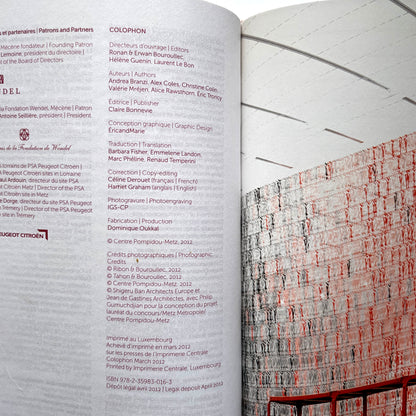 s et partenaires | Patrons and Partners
Mécène fondateur | Founding Patron
Lemoine, président du directoire |
of the Board of Directors
NDEL
la Fondation Wendel, Mécène | Patron
Antoine Seillière, président |
is de la Fondation de Wendel
Lorrains de PSA Peugeot Citroën |
Peugeot Citroën sites in Lorraine
Paul Ardouin, directeur du site PSA
Citroën de Metz | Director of the PSA
Citroën sites in Metz
e Dorge, directeur du site PSA
n de Trémery | Director of the PSA
sites in Trémery
PEUGEOT CITROËN
COLOPHON
Directeurs d'ouvrage | Editors
Ronan & Erwan Bouroullec,
Hélène Guenin, Laurent Le Bon
Auteurs | Authors
Andrea Branzi, Alex Coles, Christine Colin,
Valérie Mréjen, Alice Rawsthorn, Éric Troncy
Éditrice | Publisher
Claire Bonnevie
Conception graphique | Graphic Design
ÉricandMarie
Traduction | Translation
Barbara Fisher, Emmelene Landon,
Marc Phéline, Renaud Temperini
Correction | Copy-editing
Céline Derouet (français | French)
Harriet Graham (anglais | English)
Photogravure | Photoengraving
IGS-CP
Fabrication | Production
Dominique Oukkal
© Centre Pompidou-Metz, 2012
Crédits photographiques | Photographic
Credits
© Ronan & Erwan Bouroullec, 2012
© Studio Bouroullec, 2012
© Centre Pompidou-Metz, 2012
© Shigeru Ban Architects Europe et
Jean de Gastines Architectes, avec Philip
Gumuchdjian pour la conception du projet
lauréat du concours/Metz Métropole/
Centre Pompidou-Metz
Imprimé au Luxembourg
Achevé d'imprimer en mars 2012
sur les presses de l'Imprimerie Centrale
Colophon March 2012
Printed by Imprimerie Centrale, Luxembourg
ISBN 978-2-35983-016-3
Dépôt légal avril 2012 | Legal deposit April 2012